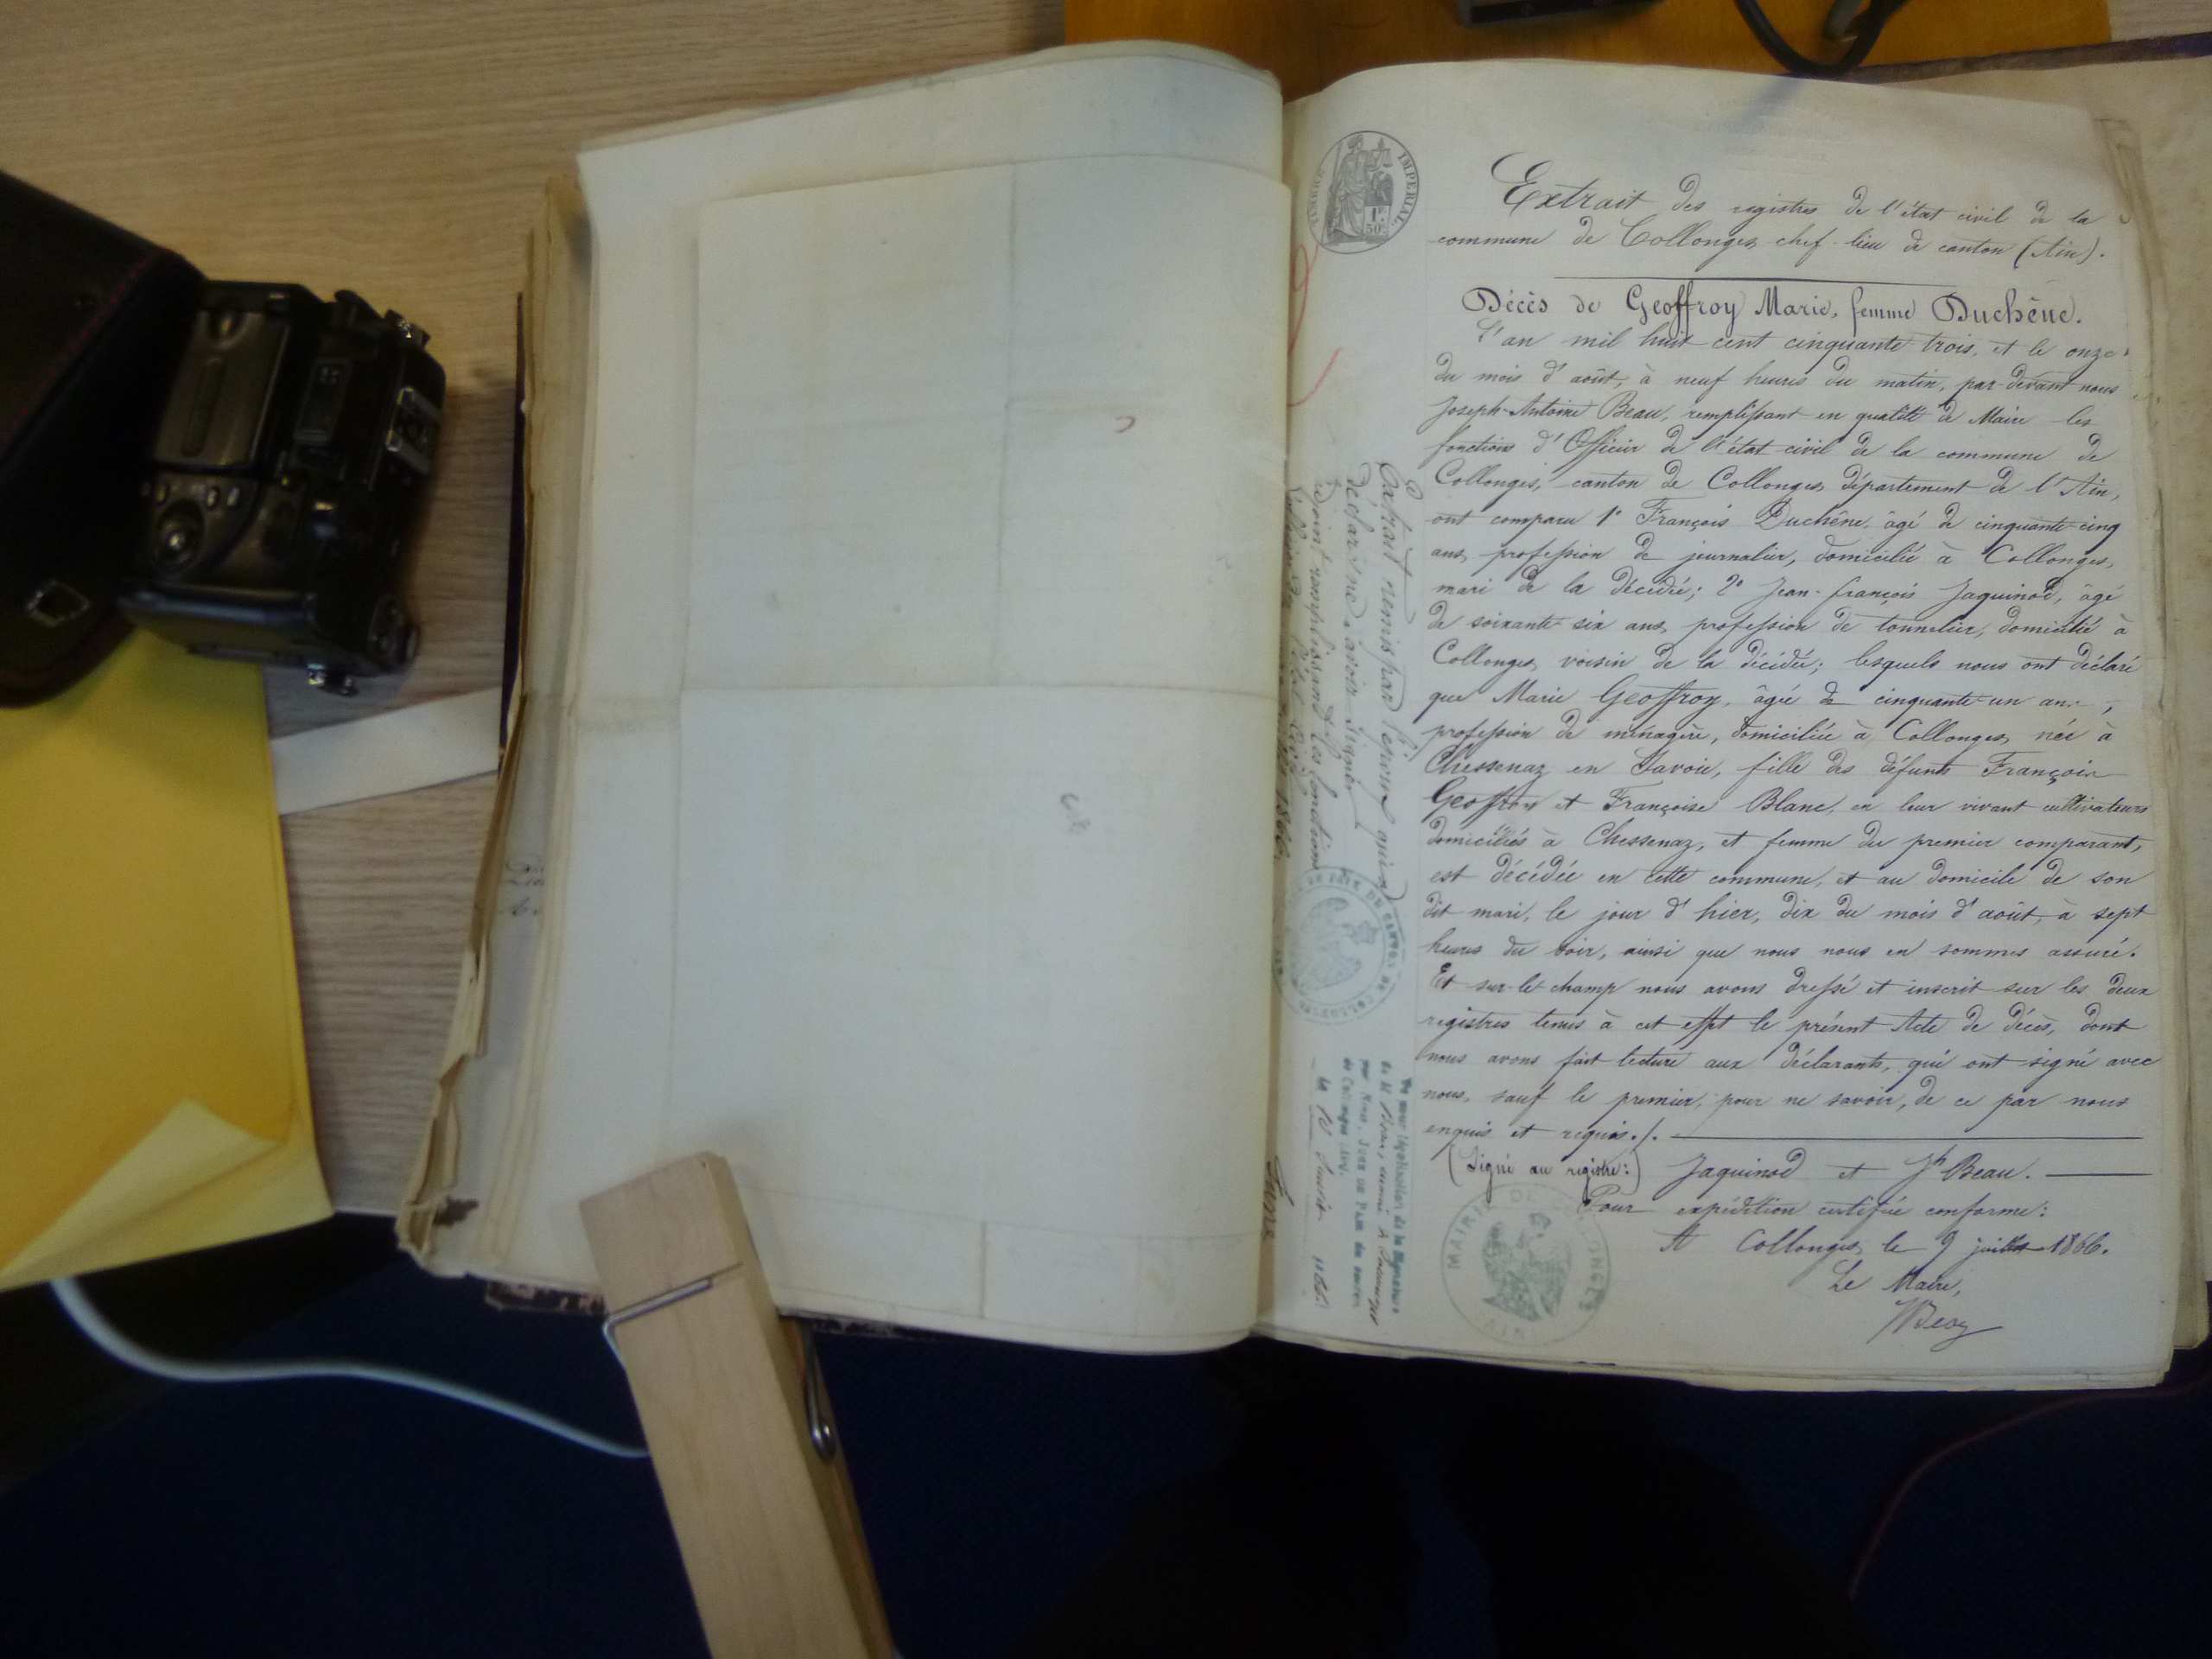 TIMBRE IMPERIAL
1F
50c
Extrait des registres de l'état civil de la
commune de Collonges chef-lieu de canton (Ain).
Décès de Geoffroy Marie, femme Duchêne.
L'an mil huit cent cinquante trois, et le onze
du mois d'août, à neuf heures du matin, par-devant nous
Joseph-Antoine Beau, remplissant en qualité de Maire les
fonctions d'Officier de l'état civil de la commune de
Collonges, canton de Collonges, département de l'Ain,
ont comparu 1° François Duchêne, âgé de cinquante-cinq
ans, profession de journalier, domicilié à Collonges,
mari de la décédée; 2° Jean-françois Jaquinod, âgé
de soixante-six ans, profession de tonnelier, domicilié à
Collonges, voisin de la décédée; lesquels nous ont déclaré
que Marie Geoffroy, âgée de cinquante-un ans,
profession de ménagère, domiciliée à Collonges, née à
Chessenaz en Savoie, fille des défunts François
Geoffroy et Françoise Blanc, en leur vivant cultivateurs
domiciliés à Chessenaz, et femme du premier comparant,
est décédée en cette commune, et au domicile de son
dit mari, le jour d'hier, dix du mois d'août, à sept
heures du soir, ainsi que nous nous en sommes assuré.
Et sur-le-champ nous avons dressé et inscrit sur les deux
registres tenus à cet effet le présent Acte de décès, dont
nous avons fait lecture aux déclarants, qui ont signé avec
nous, sauf le premier, pour ne savoir, de ce par nous
enquis et requis./.
(Signé au registre:) Jaquinod et Jh Beau.
Pour expédition certifiée conforme:
A Collonges, le 9 juillet 1866.
Le Maire,
MAIRIE DE COLLONGES
(AIN)
Extrait remis par l'époux qui a
déclaré ne savoir signer
Adjoint remplissant les fonctions
1866
DE PAIX DU CANTON DE COLLONGES
Vu pour légalisation de la Signature
de M
par Nous, Juge de Paix du canton
de Collonges (Ain).